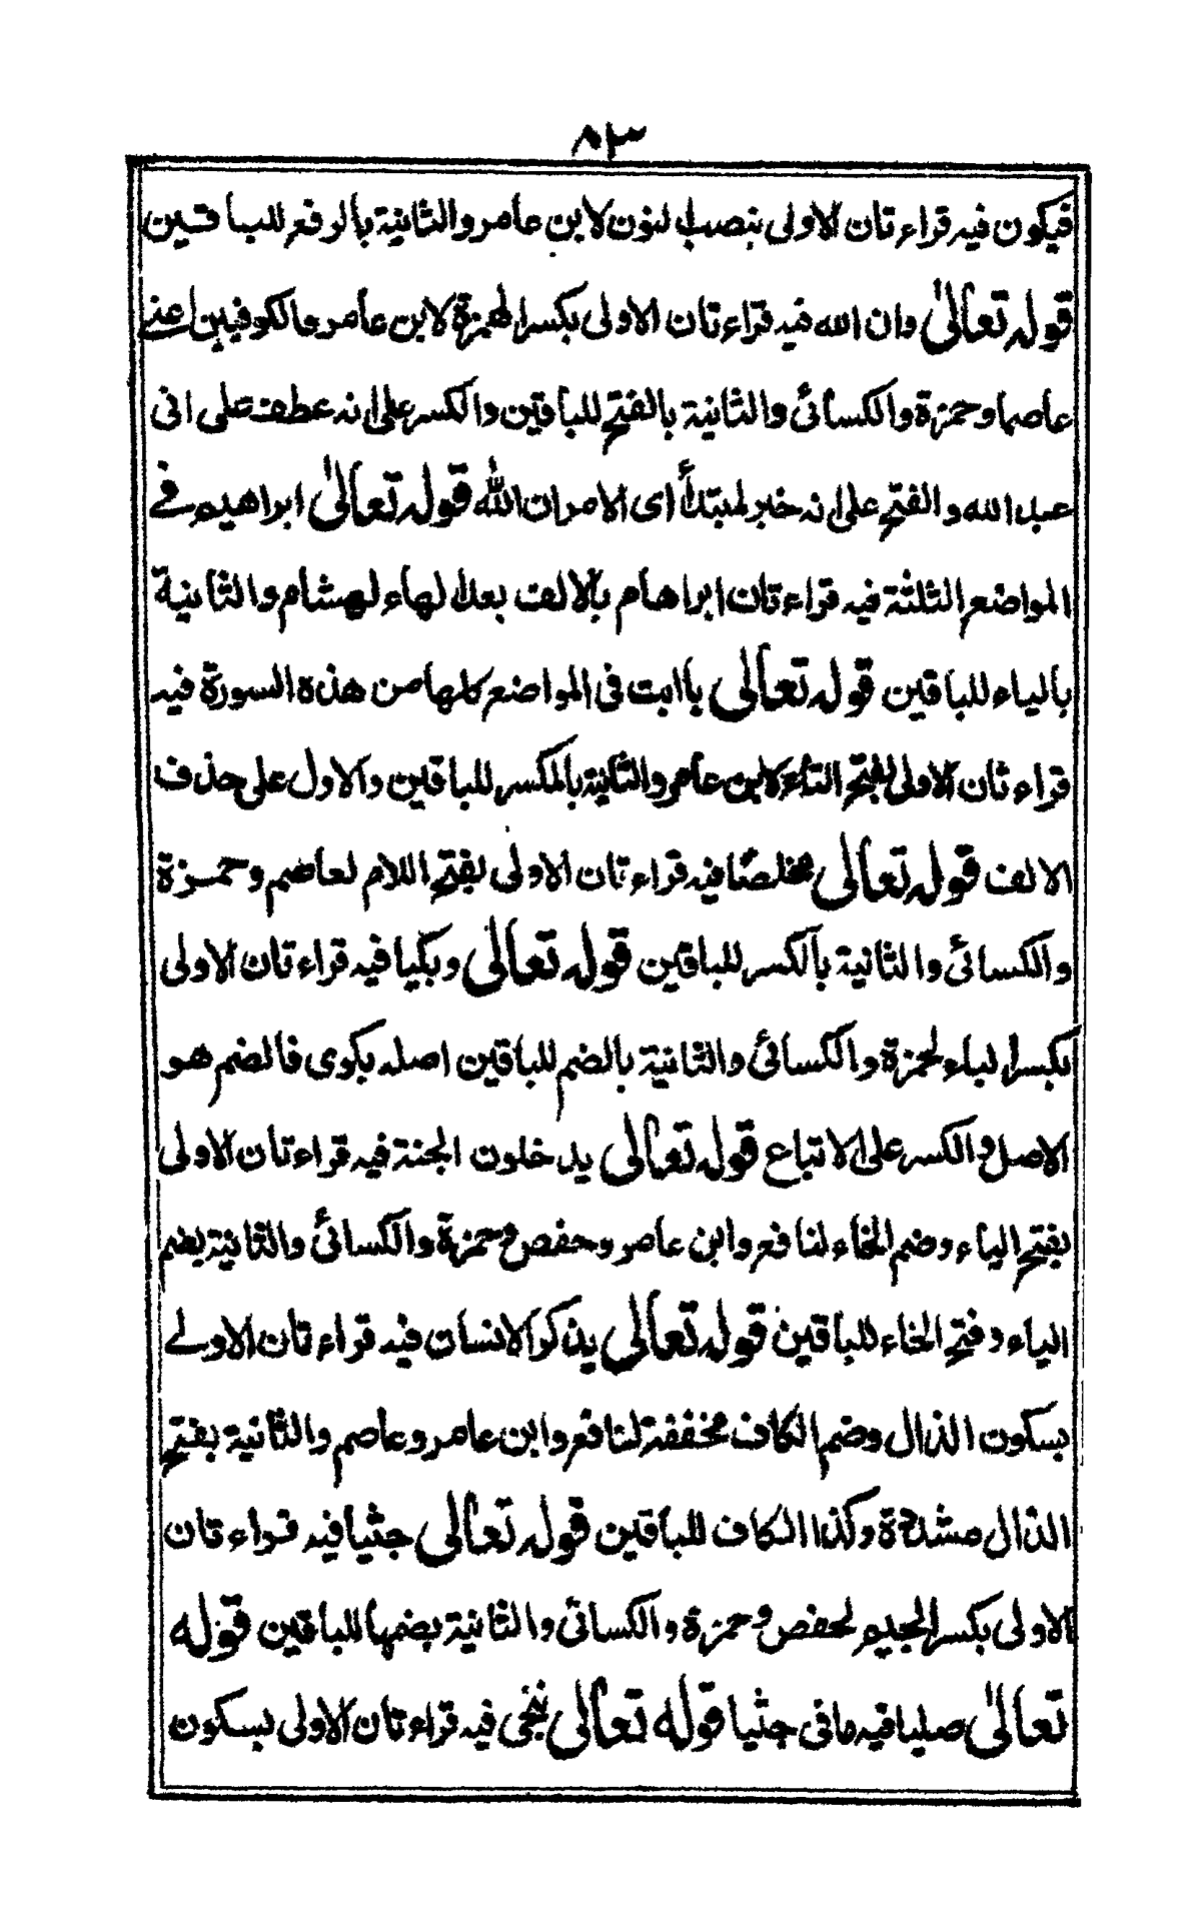 ٨٣
فيكون فيه قراءتان الاولى بنصب النون لابن عامر والثانية بالرفع للباقين
قوله تعالىٰ وان الله فيه قراءتان الاولى بكسر الهمزة لابن عامر والكوفيين اعنے
عاصما وحمزة والكسائي والثانية بالفتح للباقين والكسر على انه عطف على انى
عبد الله والفتح على انه خبر لمبتدأ اى الامر ان الله قوله تعالىٰ ابراهيم فے
المواضع الثلثة فيه قراءتان ابراهام بالالف بعد الهاء لهشام والثانية
بالياء للباقين قوله تعالى يا ابت فى المواضع كلها من هذه السورة فيه
قراءتان الاولى بفتح التاء لابن عامر والثانية بالكسر للباقين والاول على حذف
الالف قوله تعالى مخلصا فيه قراءتان الاولى بفتح اللام لعاصم وحمزة
والكسائي والثانية بالكسر للباقين قوله تعالى وبكيا فيه قراءتان الاولى
بكسر الباء لحمزة والكسائي والثانية بالضم للباقين اصله بكوى فالضم هو
الاصل والكسر على الاتباع قوله تعالى يدخلون الجنة فيه قراءتان الاولى
بفتح الياء وضم الخاء لنافع وابن عامر وحفص وحمزة والكسائي والثانية بضم
الياء وفتح الخاء للباقين قوله تعالى يذكر الانسان فيه قراءتان الاولے
بسكون الذال وضم الكاف مخففة لنافع وابن عامر وعاصم والثانية بفتح
الذال مشددة وكذا الكاف للباقين قوله تعالى جثيا فيه قراءتان
الاولى بكسر الجيم لحفص وحمزة والكسائي والثانية بضمها للباقين قوله
تعالىٰ صليا فيه ما فى جثيا قوله تعالى ننجى فيه قراءتان الاولى بسكون